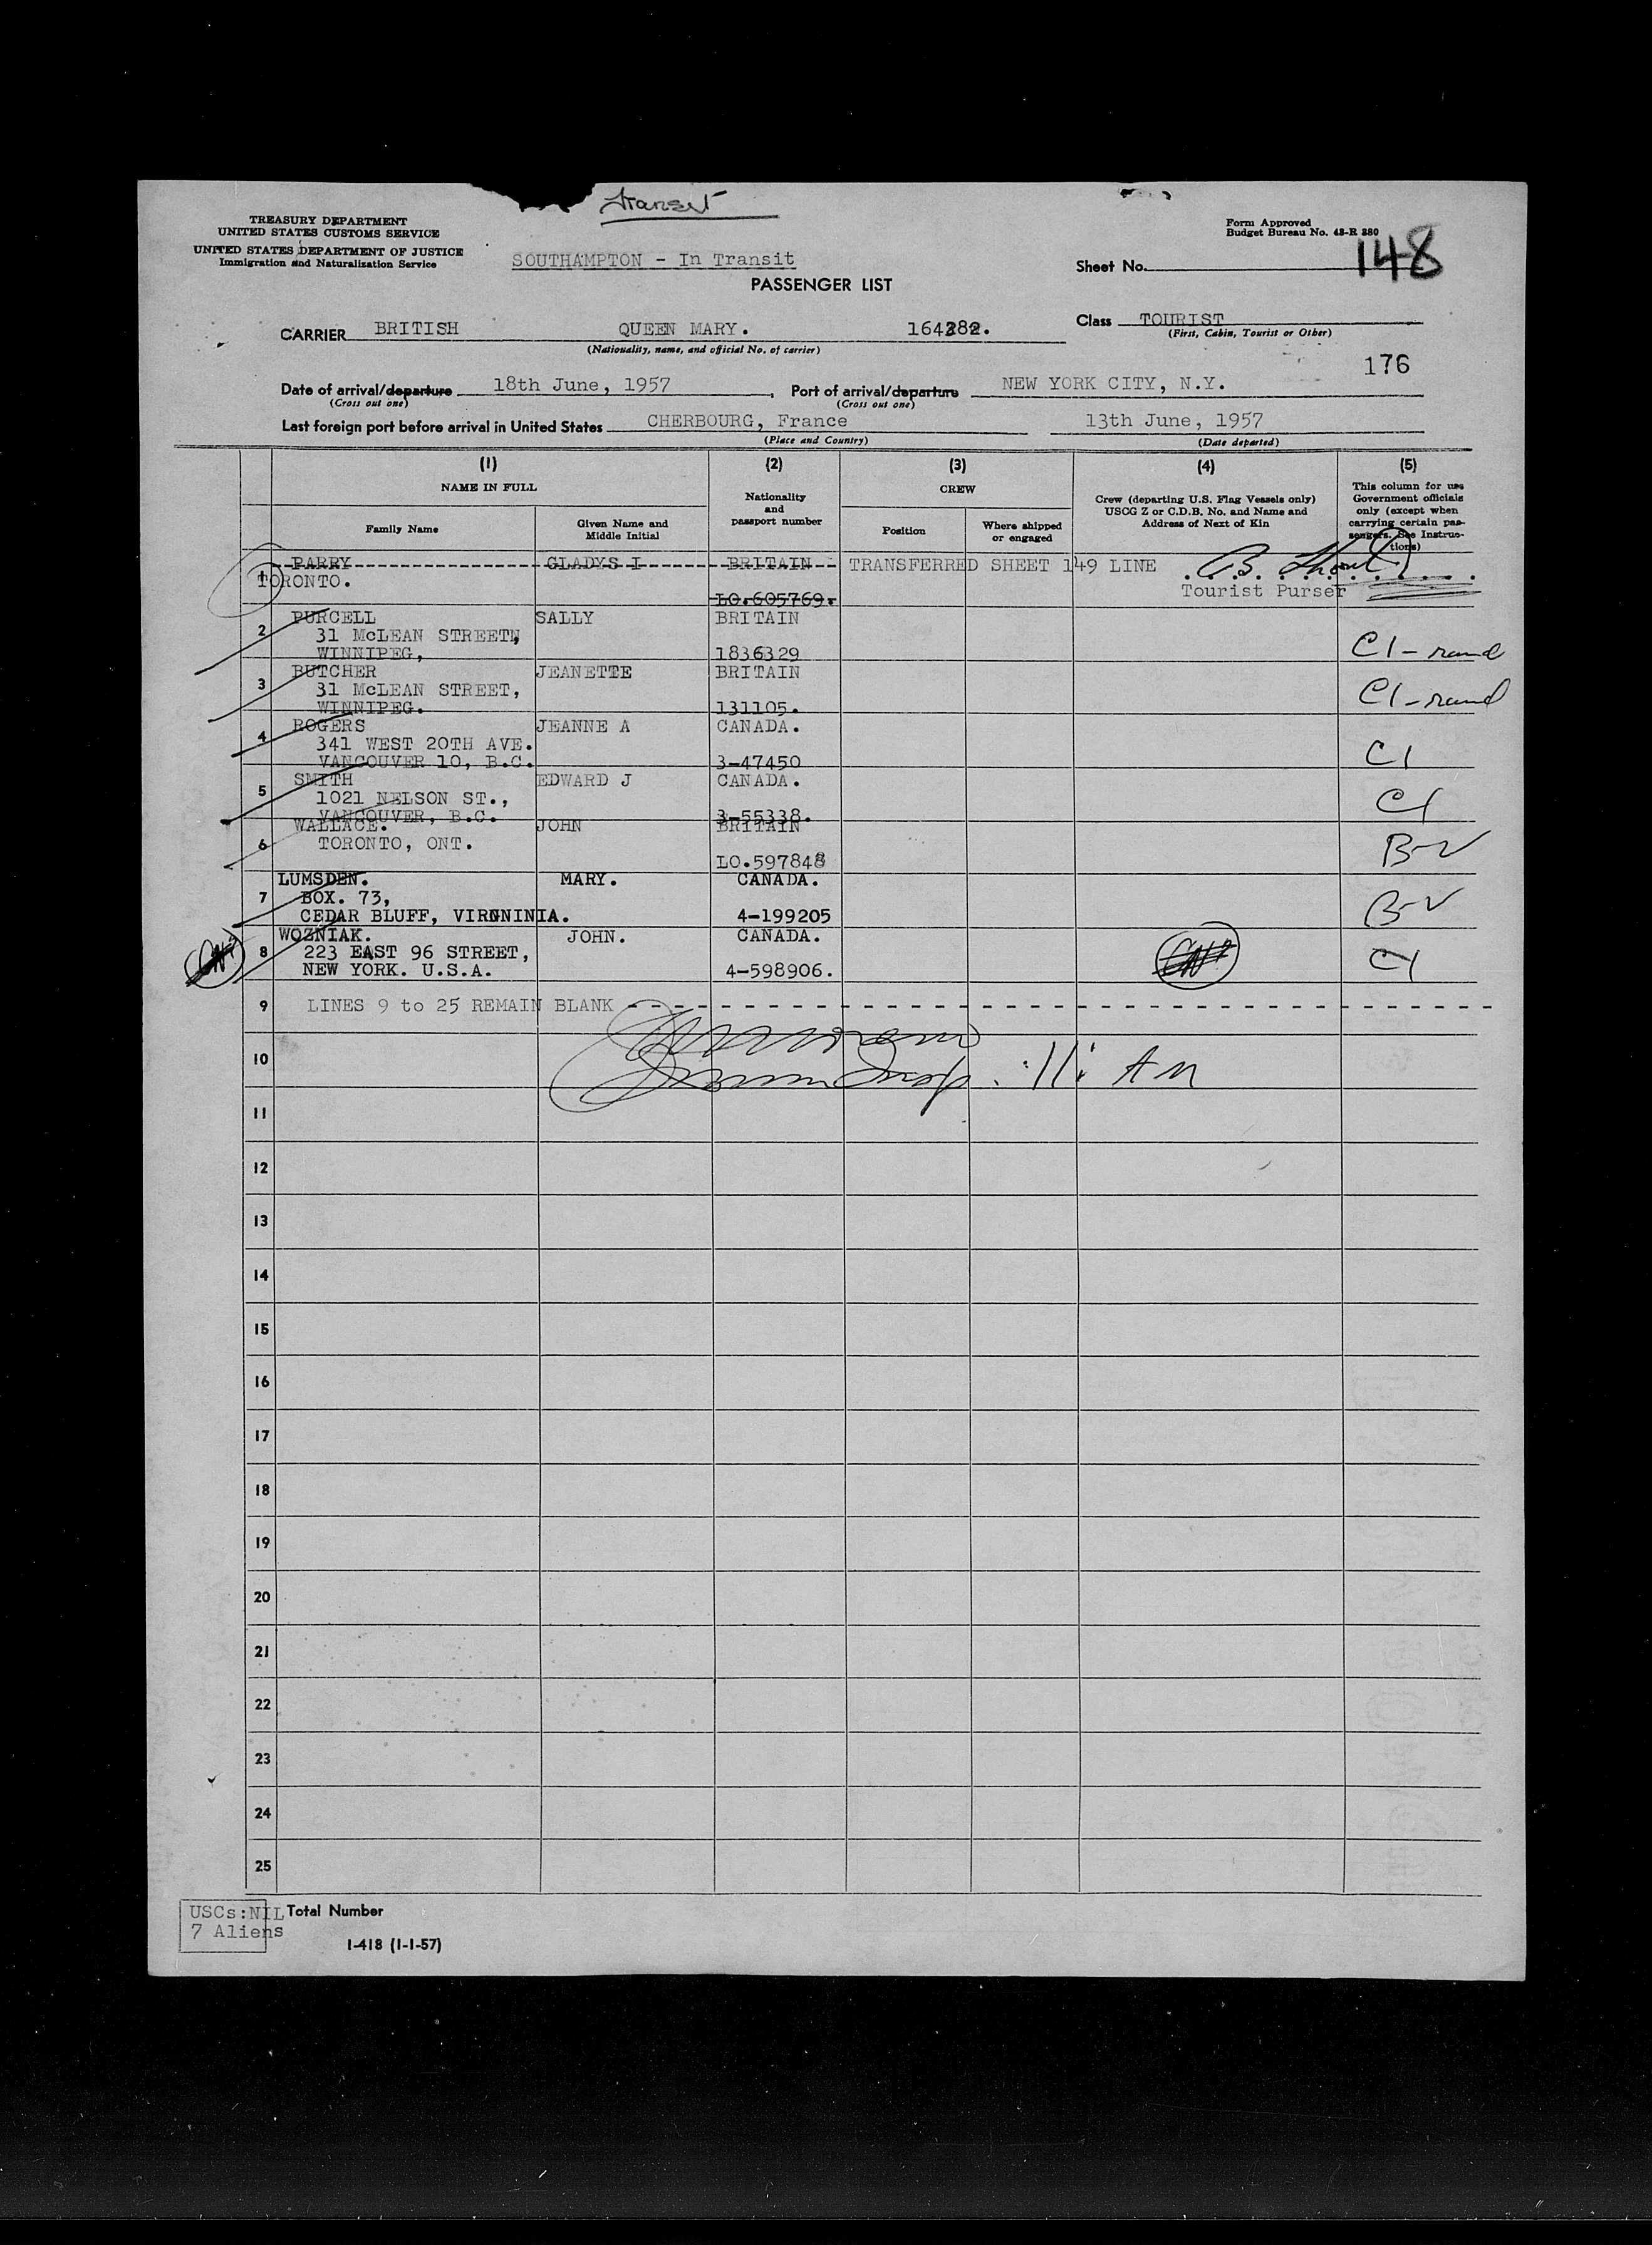 transit
TREASURY DEPARTMENT
UNITED STATES CUSTOMS SERVICE
UNITED STATES DEPARTMENT OF JUSTICE
Immigration and Naturalization Service
Form Approved
Budget Bureau No. 43-R 380
SOUTHAMPTON - In Transit
PASSENGER LIST
Sheet No. 148
CARRIER BRITISH QUEEN MARY. 164282.
(Nationality, name, and official No. of carrier)
Class TOURIST
(First, Cabin, Tourist or Other)
176
Date of arrival/departure 18th June, 1957, Port of arrival/departure NEW YORK CITY, N.Y.
(Cross out one) (Cross out one)
Last foreign port before arrival in United States CHERBOURG, France 13th June, 1957
(Place and Country) (Date departed)
(1) (2) (3) (4) (5)
NAME IN FULL
Family Name
Given Name and
Middle Initial
Nationality
and
passport number
CREW
Position
Where shipped
or engaged
Crew (departing U.S. Flag Vessels only)
USCG Z or C.D.B. No. and Name and
Address of Next of Kin
This column for use
Government officials
only (except when
carrying certain pas-
sengers. See Instruc-
tions)
1 PARRY GLADYS I BRITAIN TRANSFERRED SHEET 149 LINE
TORONTO.
LO.605769.
Tourist Purser
2 PURCELL SALLY BRITAIN
31 McLEAN STREET,
WINNIPEG, 1836329 C1-
3 BUTCHER JEANETTE BRITAIN
31 McLEAN STREET,
WINNIPEG. 131105. C1-
4 ROGERS JEANNE A CANADA.
341 WEST 20TH AVE.
VANCOUVER 10, B.C. 3-47450 C1
5 SMITH EDWARD J CANADA.
1021 NELSON ST.,
VANCOUVER, B.C. 3-55338. C1
6 WALLACE. JOHN BRITAIN
TORONTO, ONT.
LO.597848 B-2
7 LUMSDEN. MARY. CANADA.
BOX. 73,
CEDAR BLUFF, VIRGNINIA. 4-199205 B-2
8 WOZNIAK. JOHN. CANADA.
223 EAST 96 STREET,
NEW YORK. U.S.A. 4-598906. C1
9 LINES 9 to 25 REMAIN BLANK
10 11: AM
11
12
13
14
15
16
17
18
19
20
21
22
23
24
25
USCs:NIL Total Number
7 Aliens
I-418 (1-1-57)